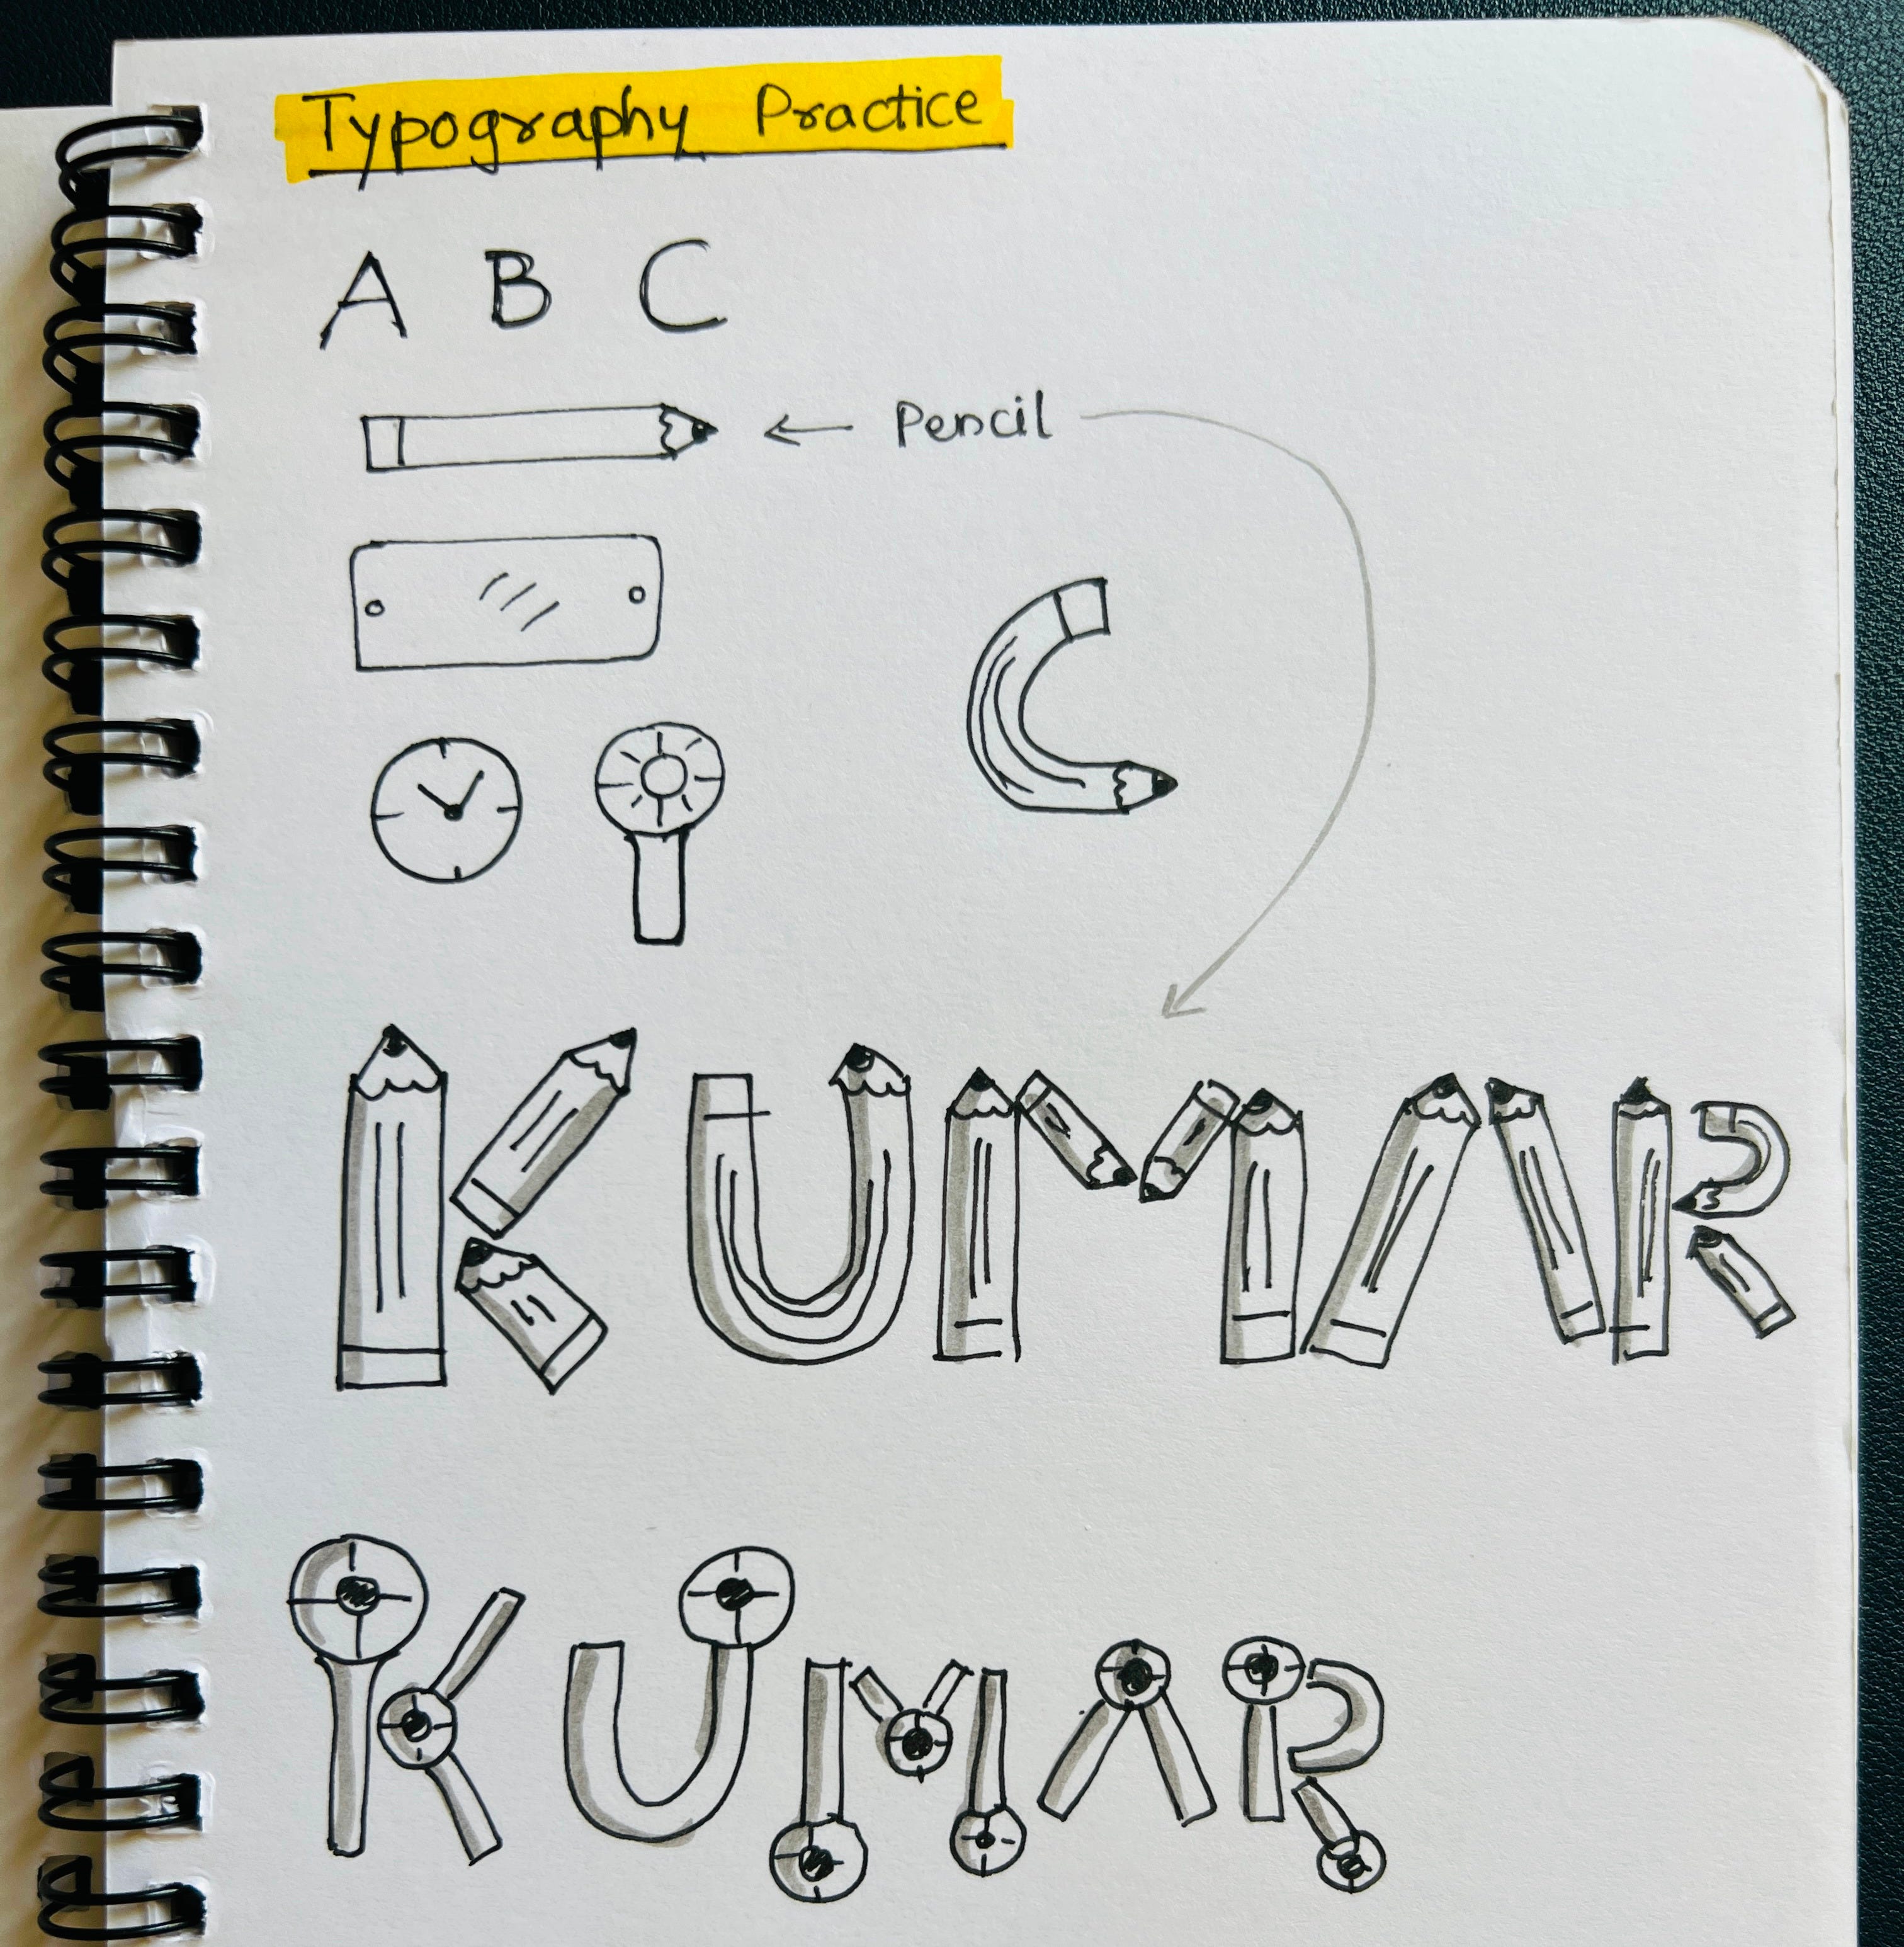 Typography Practice
A B C
← Pencil
C
KUMAR
KUMAR